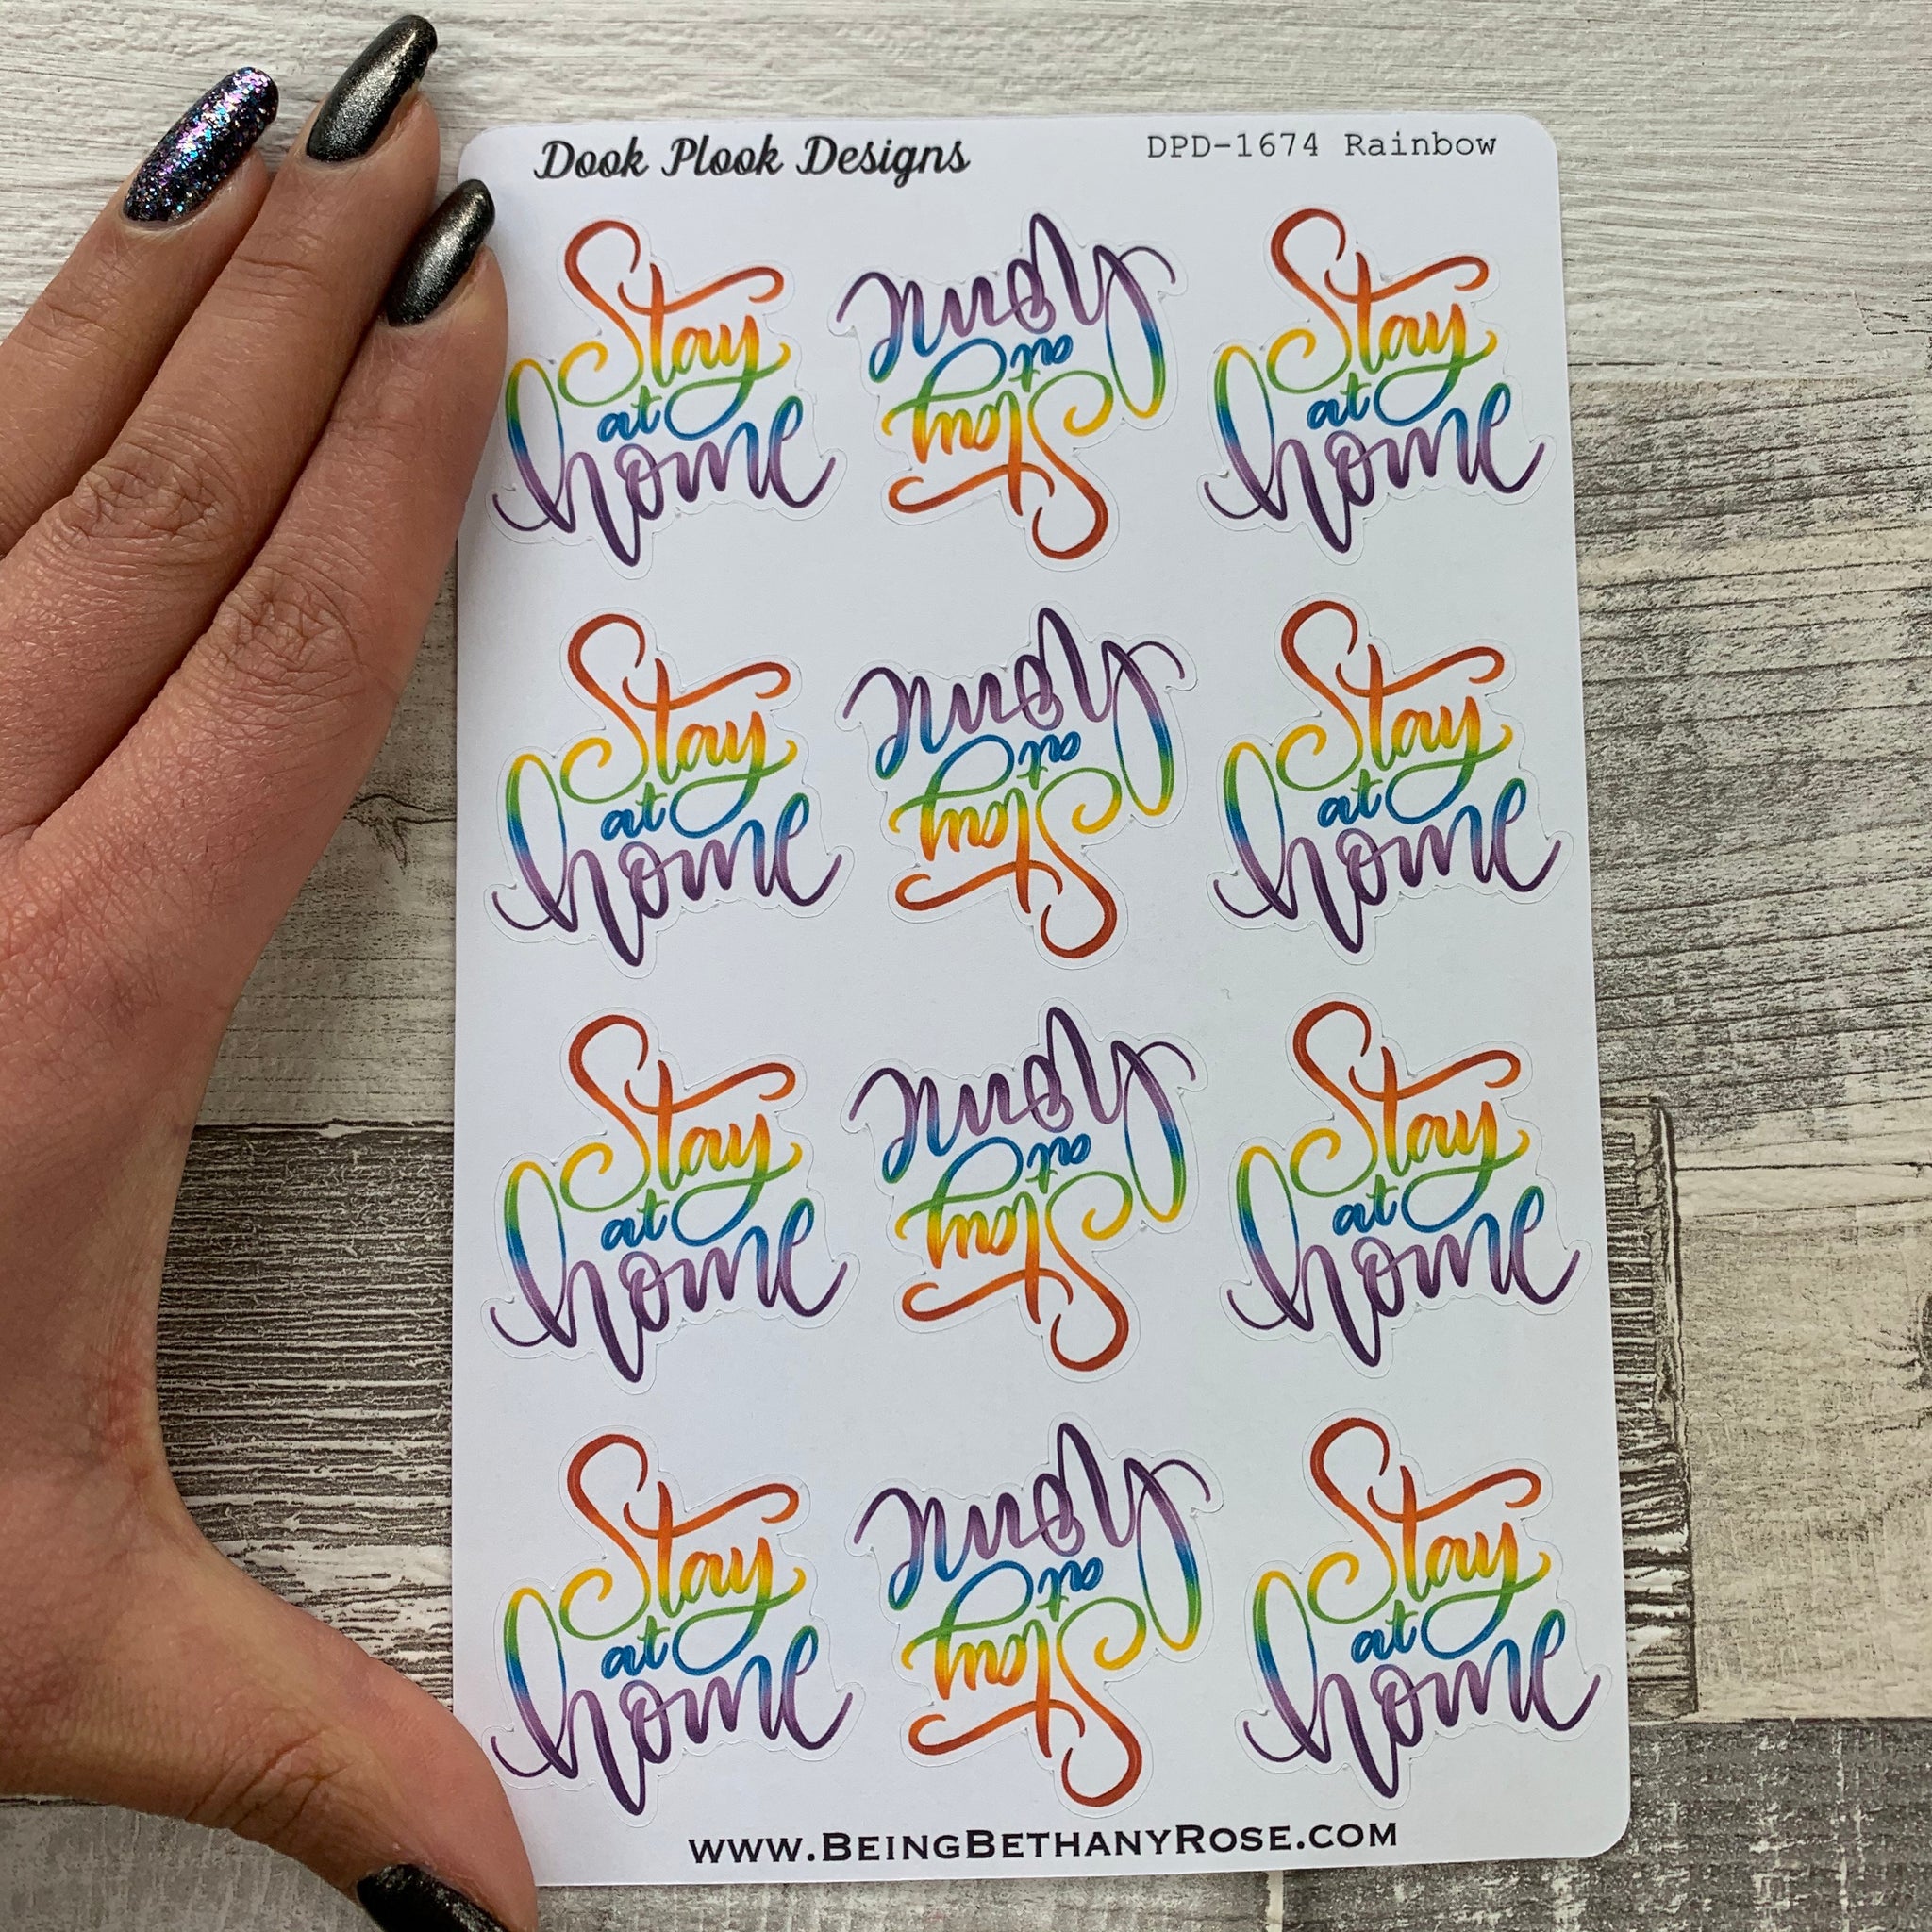 Dook Plook Designs
DPD-1674 Rainbow
Stay
at
home
Stay
at
home
Stay
at
home
Stay
at
home
Stay
at
home
Stay
at
home
Stay
at
home
Stay
at
home
Stay
at
home
Stay
at
home
Stay
at
home
Stay
at
home
www.BeingBethanyRose.com